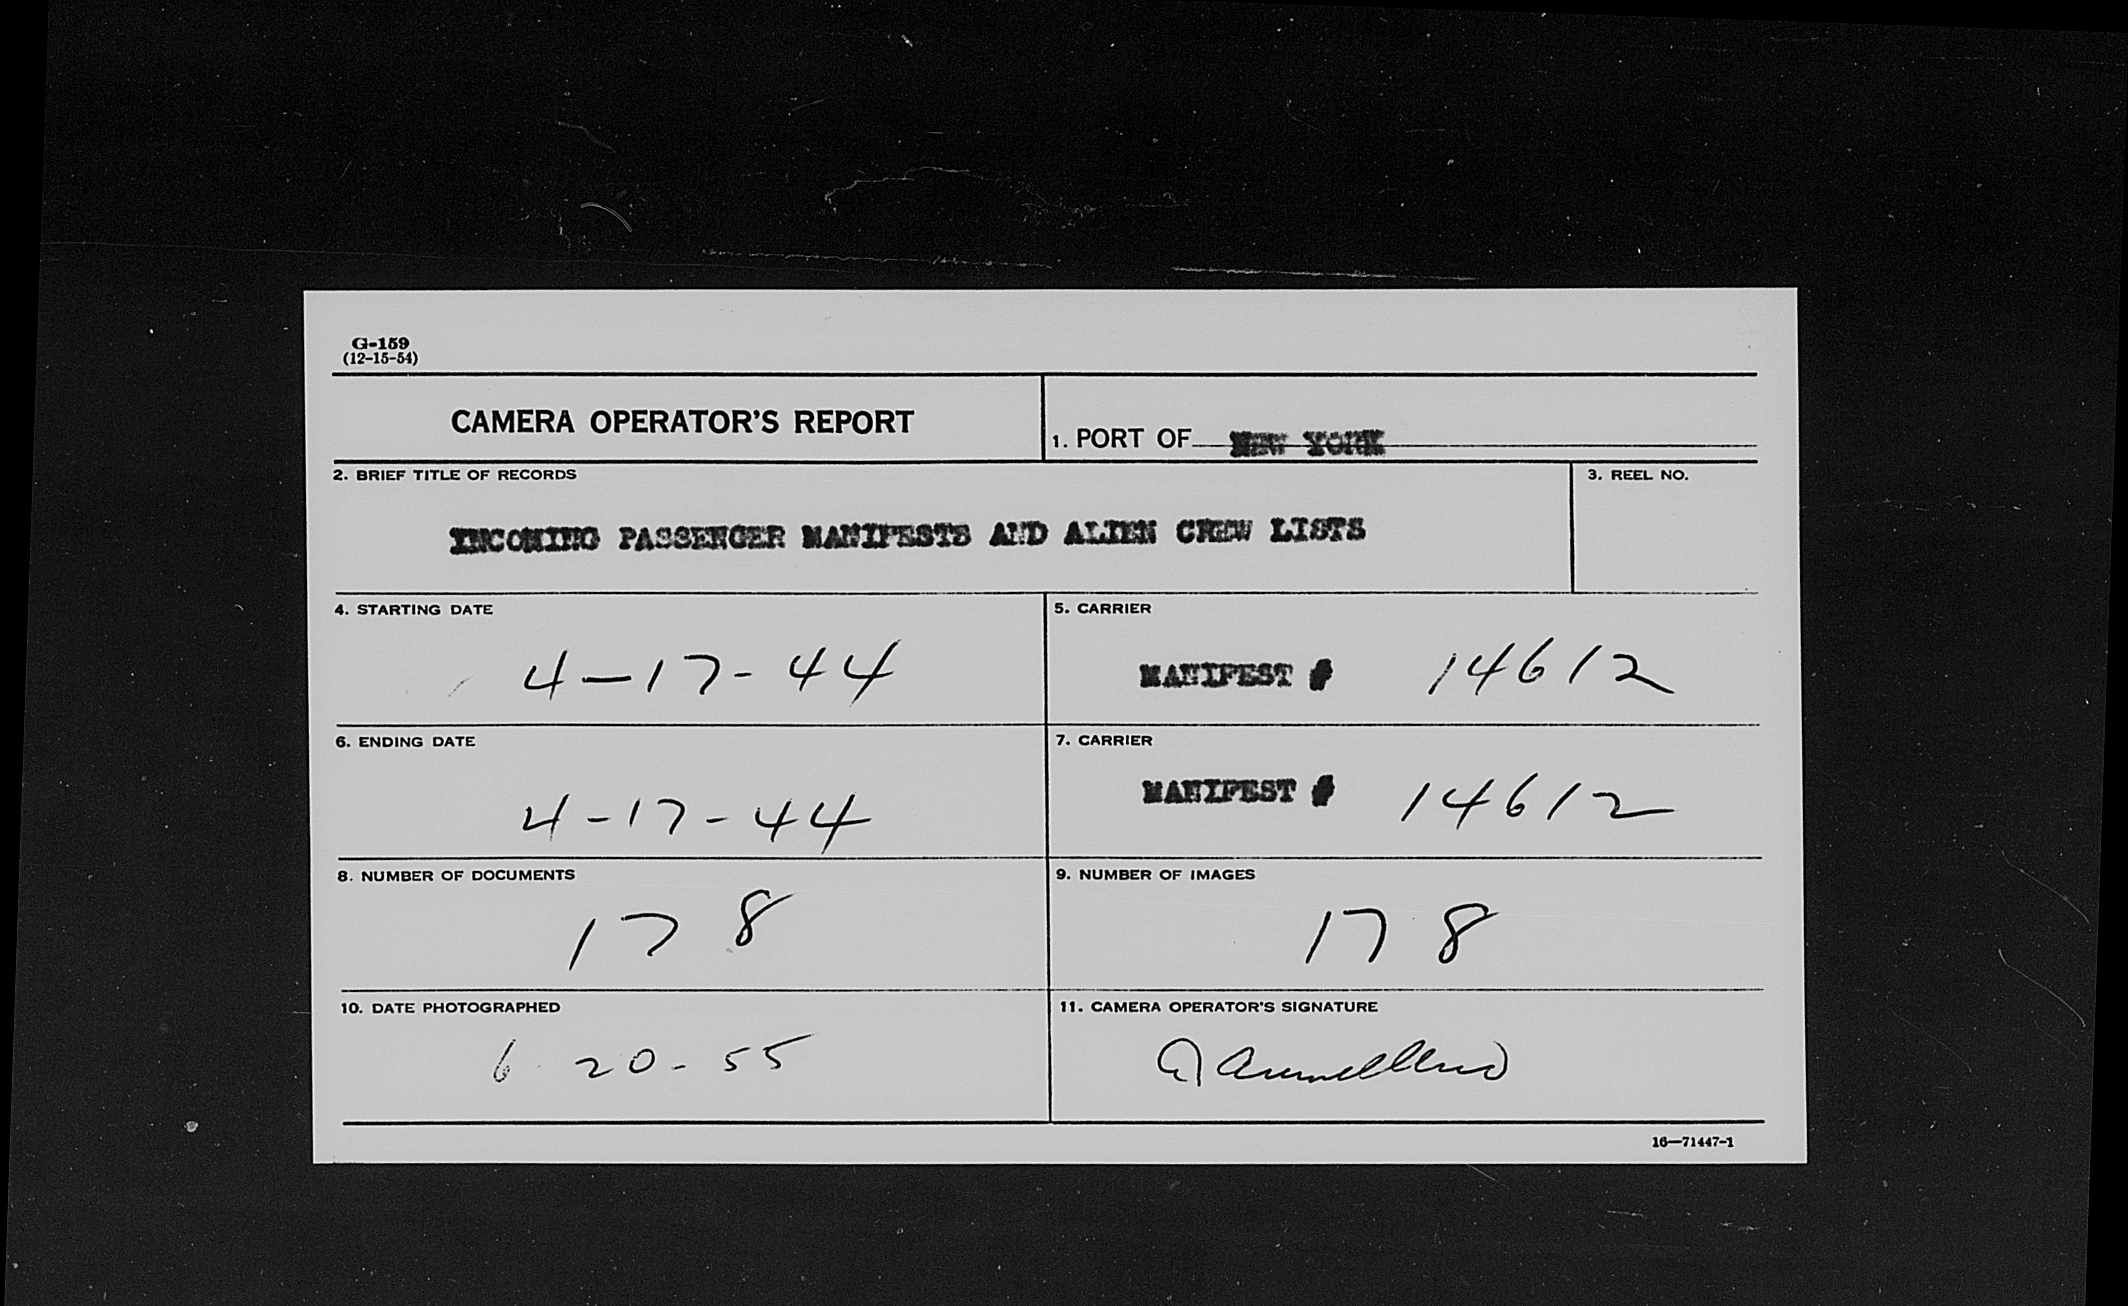 G-159
(12-15-54)
CAMERA OPERATOR'S REPORT
1. PORT OF NEW YORK
2. BRIEF TITLE OF RECORDS
3. REEL NO.
INCOMING PASSENGER MANIFESTS AND ALIEN CREW LISTS
4. STARTING DATE
5. CARRIER
4-17-44
MANIFEST # 14612
6. ENDING DATE
7. CARRIER
4-17-44
MANIFEST # 14612
8. NUMBER OF DOCUMENTS
9. NUMBER OF IMAGES
178
178
10. DATE PHOTOGRAPHED
11. CAMERA OPERATOR'S SIGNATURE
6 20-55
16—71447-1